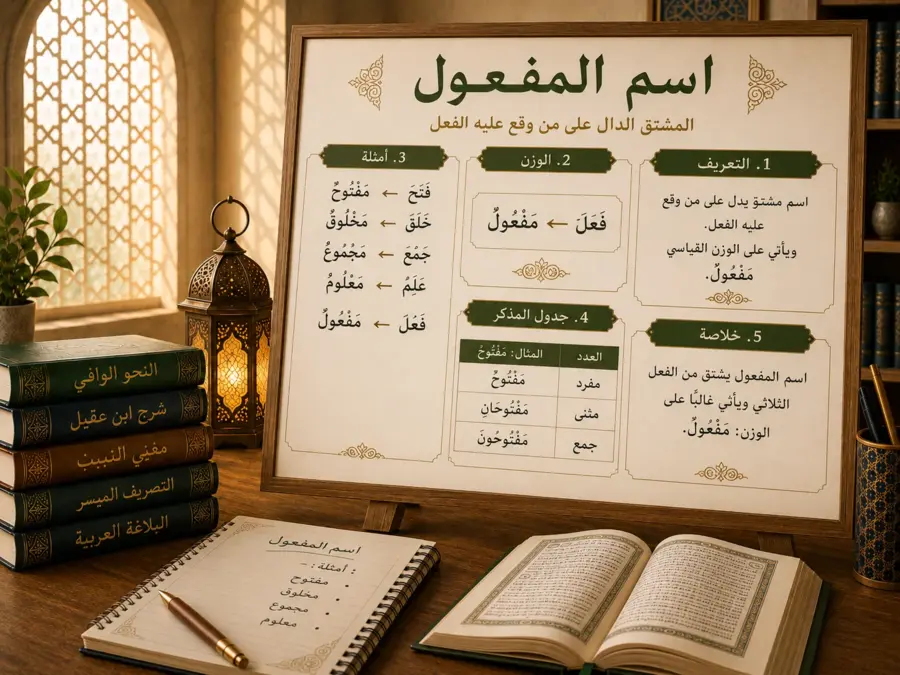 اسم المفعول
المشتق الدال على من وقع عليه الفعل
1. التعريف
اسم مشتق يدل على من وقع
عليه الفعل.
ويأتي على الوزن القياسي
مَفْعُولٌ.
2. الوزن
فَعَلَ ← مَفْعُولٌ
3. أمثلة
فَتَحَ ← مَفْتُوحٌ
خَلَقَ ← مَخْلُوقٌ
جَمْعَ ← مَجْمُوعٌ
عَلِمُ ← مَعْلُومٌ
فَعْلَ ← مَفْعُولٌ
4. جدول المذكر
العدد المثال: مَفْتُوحٌ
مفرد مَفْتُوحٌ
مثنى مَفْتُوحَانِ
جمع مَفْتُوحُونَ
5. خلاصة
اسم المفعول يشتق من الفعل
الثلاثي ويأتي غالبًا على
الوزن: مَفْعُولٌ.
النحو الوافي
شرح ابن عقيل
مفني النبيب
التصريف الميسر
البلاغة العربية
اسم المفعول
أمثلة: -
• مفتوح
• مخلوق
• مجموع
• معلوم